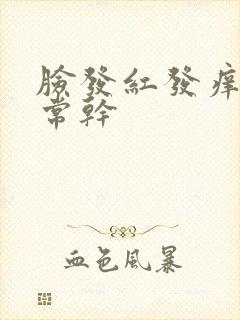 臉發紅發痒
常幹
血色風暴